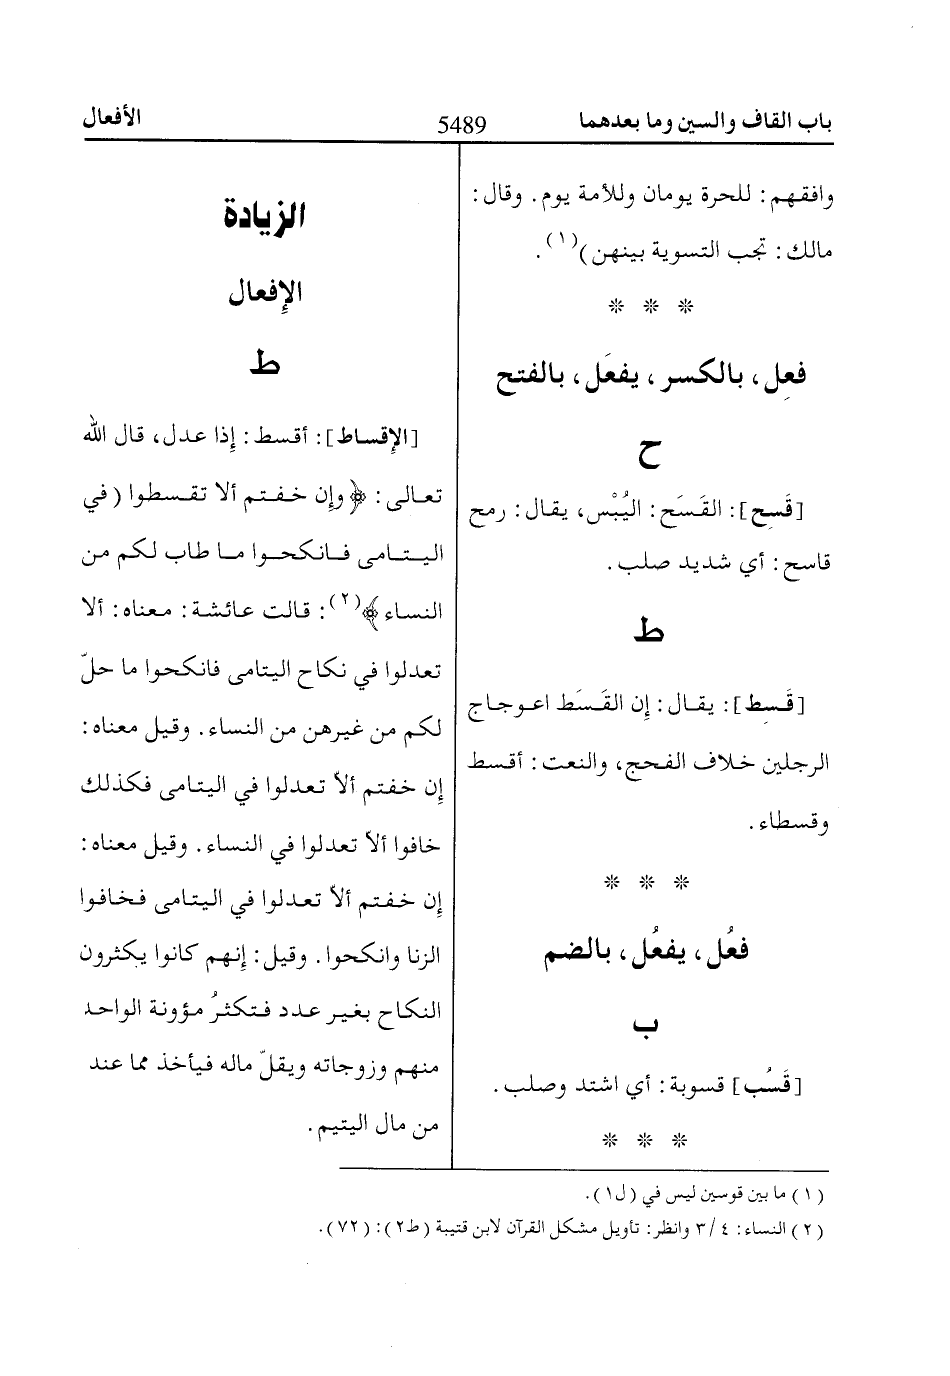 باب القاف والسين وما بعدهما
5489
الأفعال
وافقهم: للحرة يومان وللأمة يوم. وقال:
مالك: تجب التسوية بينهن)(١).
* * *
فعِل، بالكسر، يفعَل، بالفتح
ح
[قَسِح]: القَسَح: اليُبْس، يقال: رمح
قاسح: أي شديد صلب.
ط
[قَسِط]: يقال: إن القَسَط اعوجاج
الرجلين خلاف الفحج، والنعت: أقسط
وقسطاء.
* * *
فعُل، يفعُل، بالضم
ب
[قَسُب] قسوبة: أي اشتد وصلب.
* * *
الزيادة
الإفعال
ط
[الإقساط]: أقسط: إذا عدل، قال الله
تعالى: ﴿وإن خفتم ألا تقسطوا (في
اليتامى فانكحوا ما طاب لكم من
النساء﴾(٢): قالت عائشة: معناه: ألا
تعدلوا في نكاح اليتامى فانكحوا ما حلّ
لكم من غيرهن من النساء. وقيل معناه:
إن خفتم ألاّ تعدلوا في اليتامى فكذلك
خافوا ألاّ تعدلوا في النساء. وقيل معناه:
إن خفتم ألاّ تعدلوا في اليتامى فخافوا
الزنا وانكحوا. وقيل: إنهم كانوا يكثرون
النكاح بغير عدد فتكثرُ مؤونة الواحد
منهم وزوجاته ويقلّ ماله فيأخذ مما عند
من مال اليتيم.
(١) ما بين قوسين ليس في (ل١).
(٢) النساء: ٤/ ٣ وانظر: تأويل مشكل القرآن لابن قتيبة (ط٢): (٧٢).